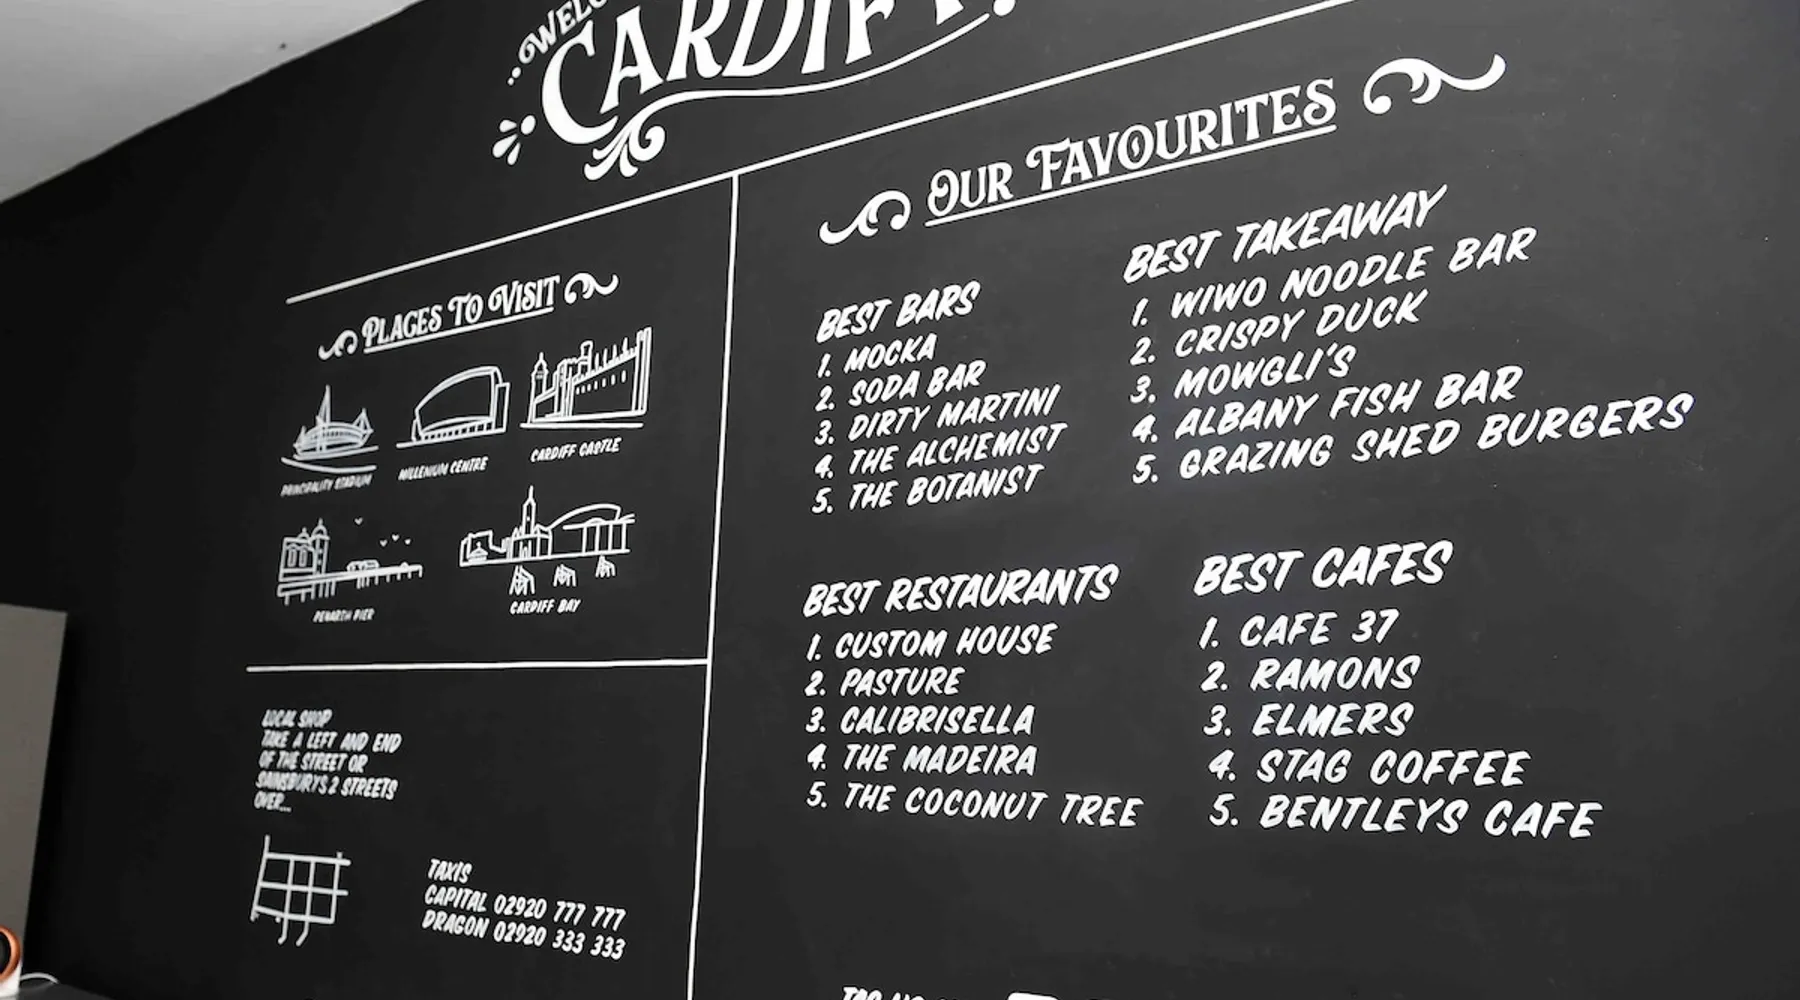 CARDIFF
PLACES TO VISIT
PRINCIPALITY STADIUM
MILLENIUM CENTRE
CARDIFF CASTLE
PENARTH PIER
CARDIFF BAY
LOCAL SHOP
TAKE A LEFT AND END
OF THE STREET OR
SAINSBURYS 2 STREETS
OVER...
TAXIS
CAPITAL 02920 777 777
DRAGON 02920 333 333
OUR FAVOURITES
BEST BARS
1. MOCKA
2. SODA BAR
3. DIRTY MARTINI
4. THE ALCHEMIST
5. THE BOTANIST
BEST TAKEAWAY
1. WIWO NOODLE BAR
2. CRISPY DUCK
3. MOWGLI'S
4. ALBANY FISH BAR
5. GRAZING SHED BURGERS
BEST RESTAURANTS
1. CUSTOM HOUSE
2. PASTURE
3. CALIBRISELLA
4. THE MADEIRA
5. THE COCONUT TREE
BEST CAFES
1. CAFE 37
2. RAMONS
3. ELMERS
4. STAG COFFEE
5. BENTLEYS CAFE